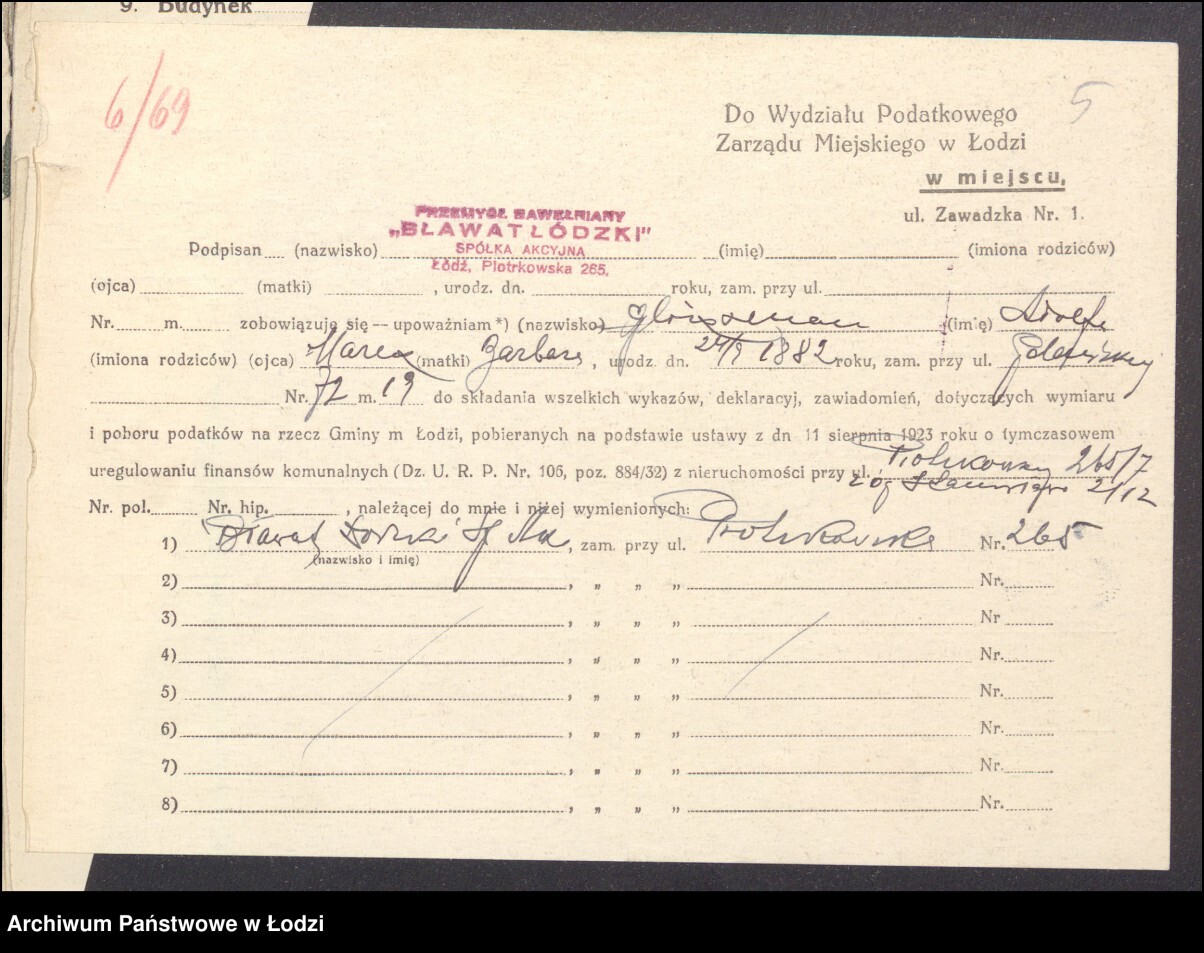 9. Budynek
6/69
5
Do Wydziału Podatkowego
Zarządu Miejskiego w Łodzi
w miejscu,
ul. Zawadzka Nr. 1.
PRZEMYSŁ BAWEŁNIANY
„BŁAWAT ŁÓDZKI"
SPÓŁKA AKCYJNA
Łódź, Piotrkowska 265.
Podpisan (nazwisko) (imię) (imiona rodziców)
(ojca) (matki) , urodz. dn. roku, zam. przy ul.
Nr. m. zobowiązuję się -- upoważniam *) (nazwisko) (imię) Adolf
(imiona rodziców) (ojca) Marek (matki) Barbara , urodz. dn. 1882 roku, zam. przy ul.
Nr. 72 m. 19 do składania wszelkich wykazów, deklaracyj, zawiadomień, dotyczących wymiaru
i poboru podatków na rzecz Gminy m Łodzi, pobieranych na podstawie ustawy z dn 11 sierpnia 1923 roku o tymczasowem
uregulowaniu finansów komunalnych (Dz. U. R. P. Nr. 106, poz. 884/32) z nieruchomości przy ul. Piotrkowska 265/7
róg 2/12
Nr. pol. Nr. hip. , należącej do mnie i niżej wymienionych:
1) Bławat Łódzki Sp Akc , zam. przy ul. Piotrkowska Nr. 265
(nazwisko i imię)
2) , „ „ „ Nr.
3) , „ „ „ Nr
4) , „ „ „ Nr.
5) , „ „ „ Nr.
6) , „ „ „ Nr.
7) , „ „ „ Nr.
8) , „ „ „ Nr.
Archiwum Państwowe w Łodzi